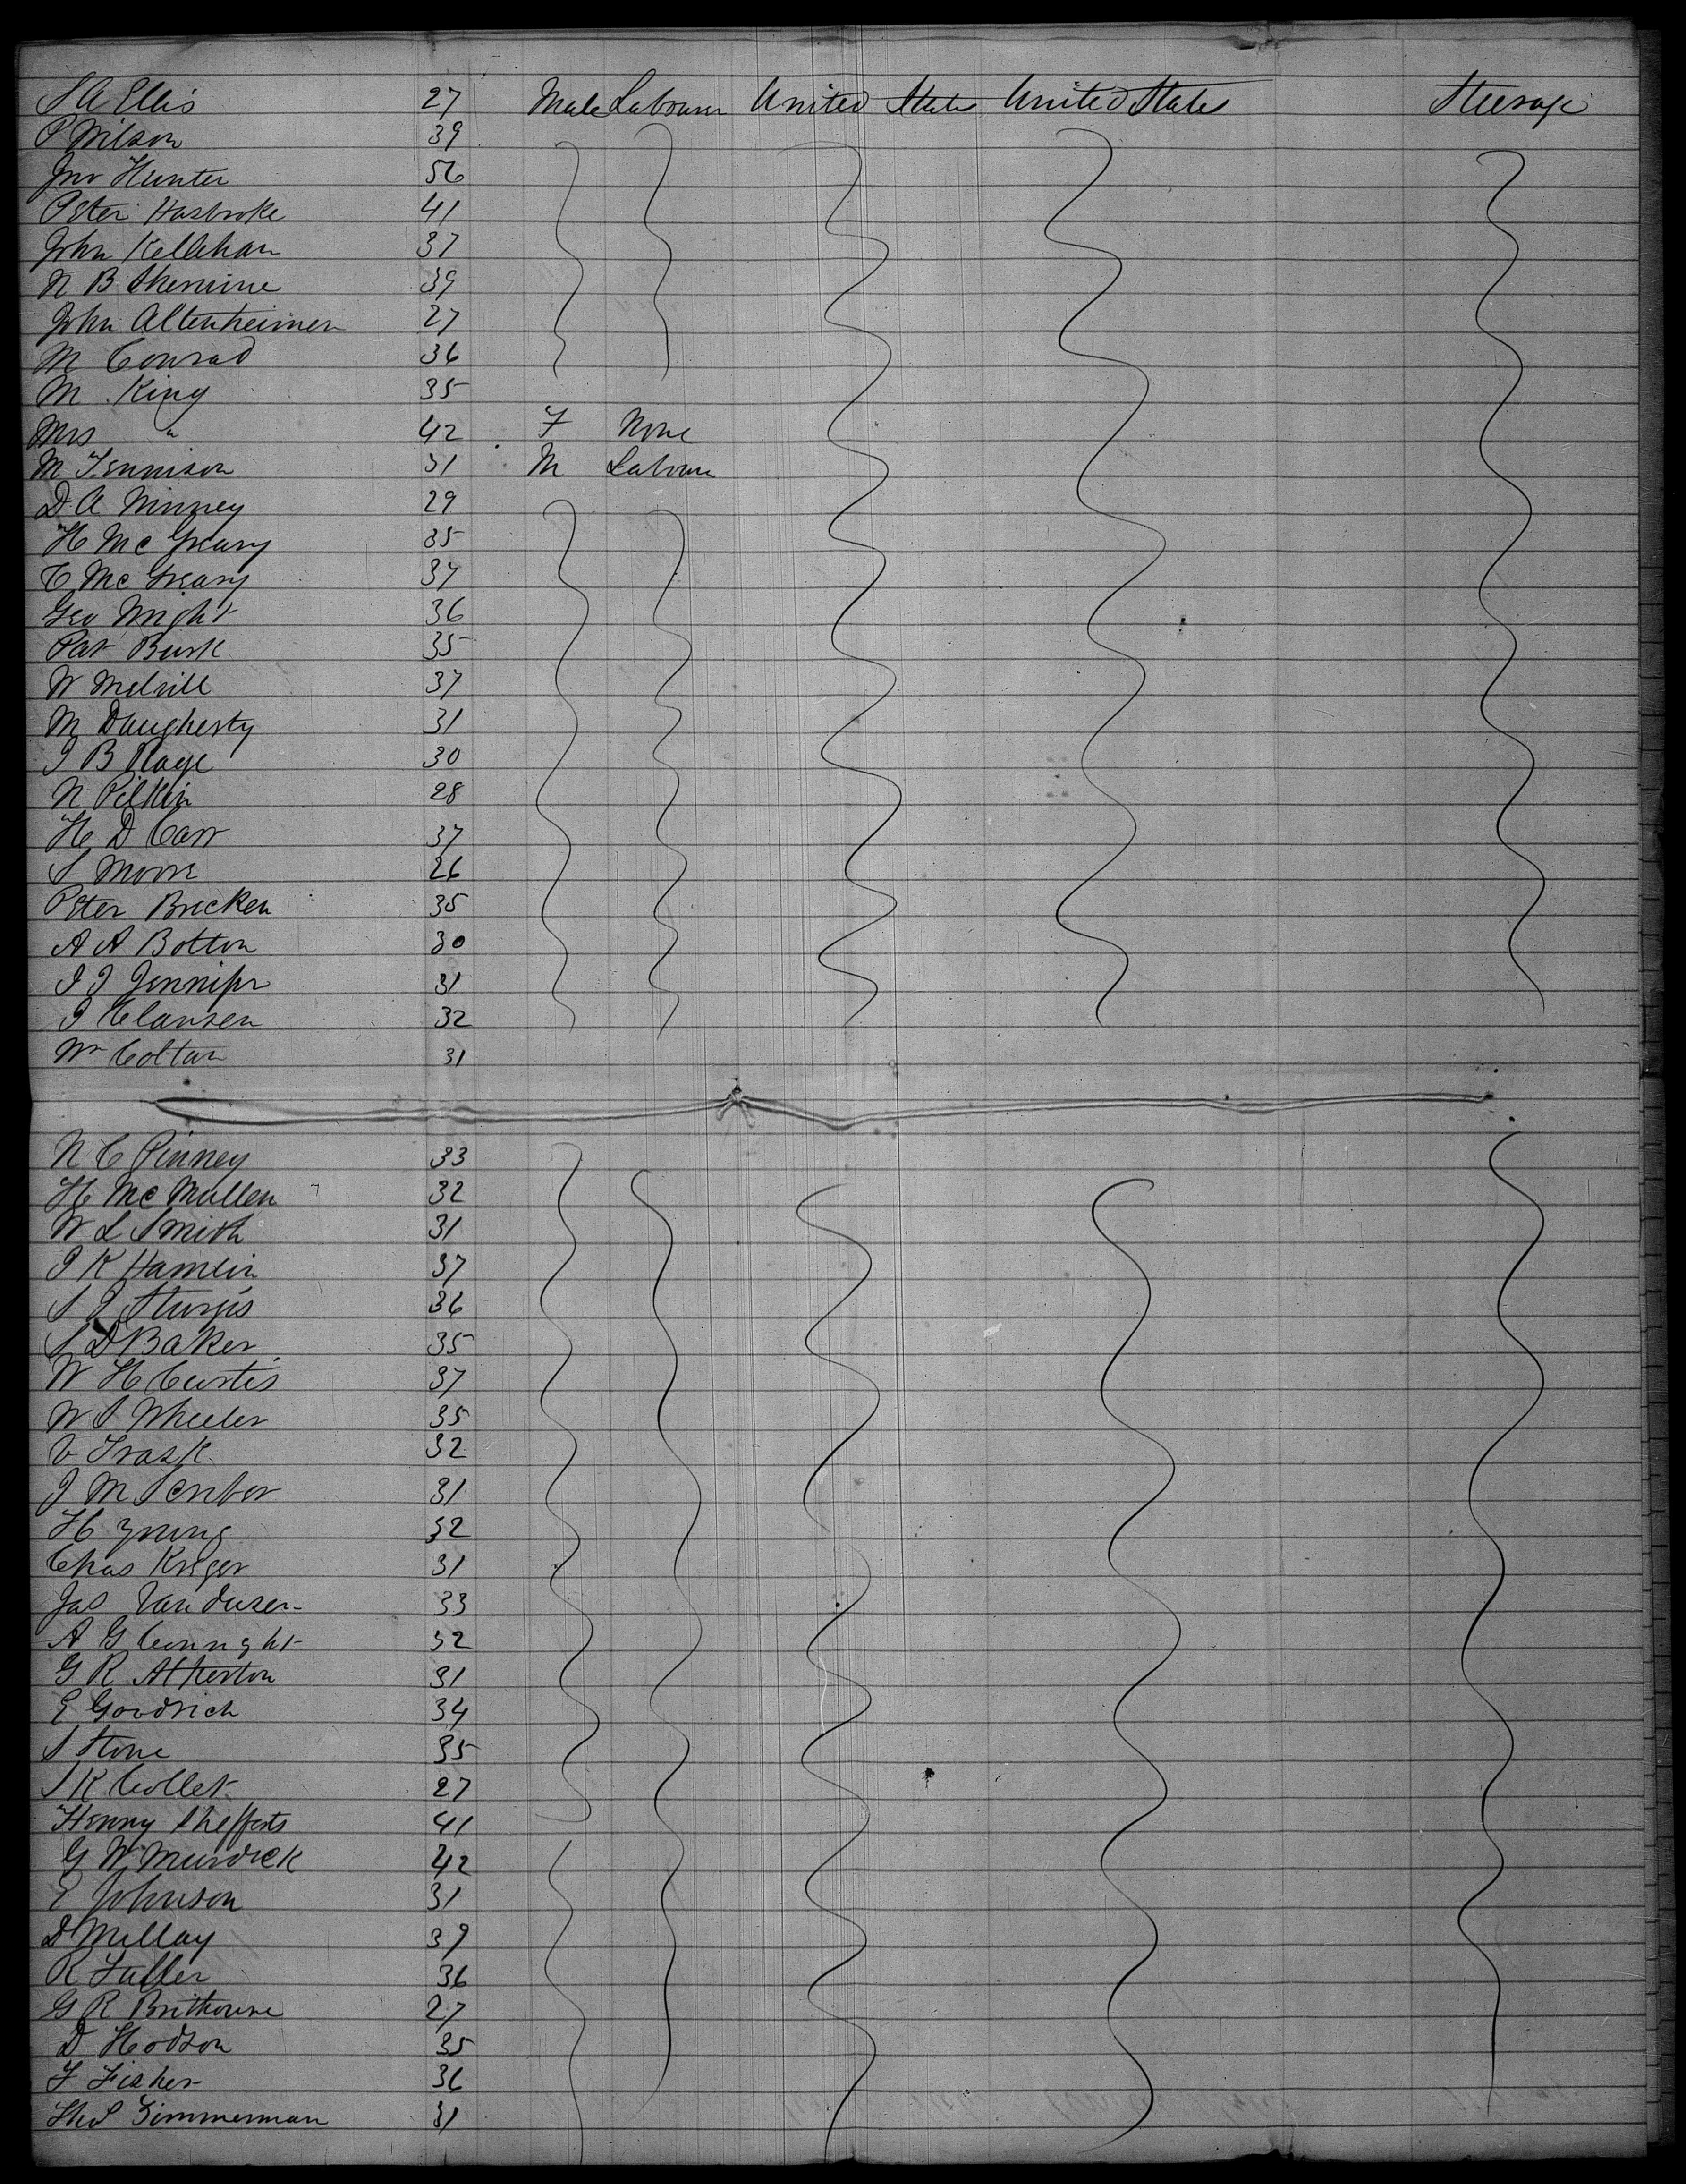 S A Ellis 27 Male Labourer United States United States Steerage
P Wilson 39
Jno Hunter 56
Peter Hasbroke 41
John Kellehan 37
N B 39
John Altenheimer 27
M Conrad 36
M King 35
Mrs " 42 F None
M Tennison 31 M Labourer
D A Ninney 29
H Mc Greary 35
C Mc Greary 34
Geo Wright 36
Pat Burk 35
W Melvill 37
M Daugherty 31
J B Page 30
N Pilkin 28
H D Carr 37
S Moore 26
Peter Bricken 35
A A Bolton 30
J J Jennifer 31
J Clausen 32
Wm Coltan 31
N C Pinney 33
H Mc Mullen 32
W L Smith 31
J K Hamlin 37
S J Sturgis 36
S D Baker 35
W H Curtis 37
W S Wheeler 35
V Trask 32
J M Scribor 31
H Young 32
Chas Kriger 31
Jas Van duzer 33
A G 32
G R Atherton 31
E Goodrich 34
S Stone 35
S K Collet 27
Henry Shefferts 41
G W Murdick 42
E Johnson 31
D Millay 39
R Fuller 36
G R 27
D Hodson 35
F Fisher 36
Thos Zimmerman 31